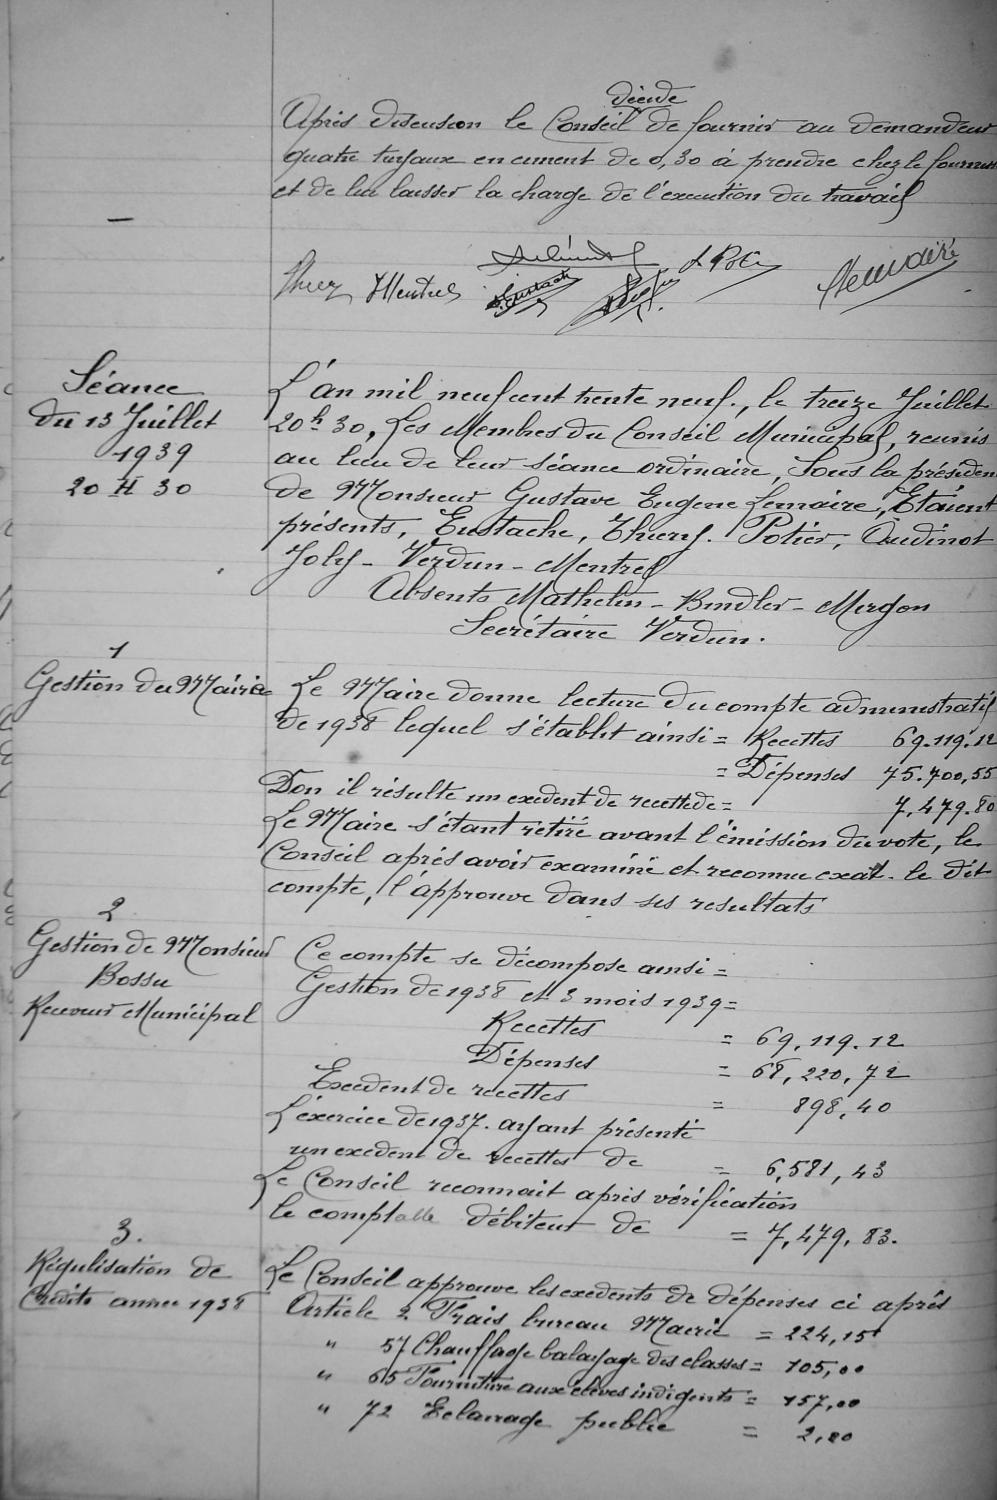 décide
Après discusion le Conseil de fournir au demandeur
quatre tuyaux en ciment de 0,30 à prendre chez le
et de lui laisser la charge de l'execution du travail
—
Lemaire
Séance
du 13 Juillet
1939
20 H 30
L'an mil neufcent trente neuf., le treize Juillet
20h 30, Les Membres du Conseil Municipal, reunis
au lieu de leur séance ordinaire, Sous la présiden
de Monsieur Gustave Eugene Lemaire, Etaient
présents, Eustache, Thiery. Potier, Oudinot
Joly - Verdun - Mentrel
Absents Mathelin - Bindler - Mergon
Secrétaire Verdun.
1
Gestion du Maire
Le Maire donne lecture du compte administratif
de 1938 lequel s'établit ainsi = Recettes 69.119.12
= Dépenses 75.700,55
Don il résulte un exedent de recette de = 7,479.80
Le Maire s'étant rétiré avant l'émission du vote, le
Conseil aprés avoir examiné et reconnu exat. le dit
compte, l'approuve dans ses resultats
2
Gestion de Monsieur
Bossu
Receveur Municipal
Ce compte se décompose ainsi =
Gestion de 1938 et 3 mois 1939 =
Recettes = 69,119.12
Dépenses = 68,220,72
Exedent de recettes = 898,40
L'éxercice de 1937. ayant présenté
un exedent de recettes de = 6,581,43
Le Conseil reconnait aprés vérification
le comptable débiteur de = 7,479,83.
3.
Régulisation de
Crédits année 1938
Le Conseil approuve les exedents de dépenses ci aprés
Article 2 Frais bureau Mairie = 224,15
" 57 Chauffage balayage des classes = 105,00
" 65 Fourniture aux éléves indigents = 157,00
" 72 Eclairage public = 2,20